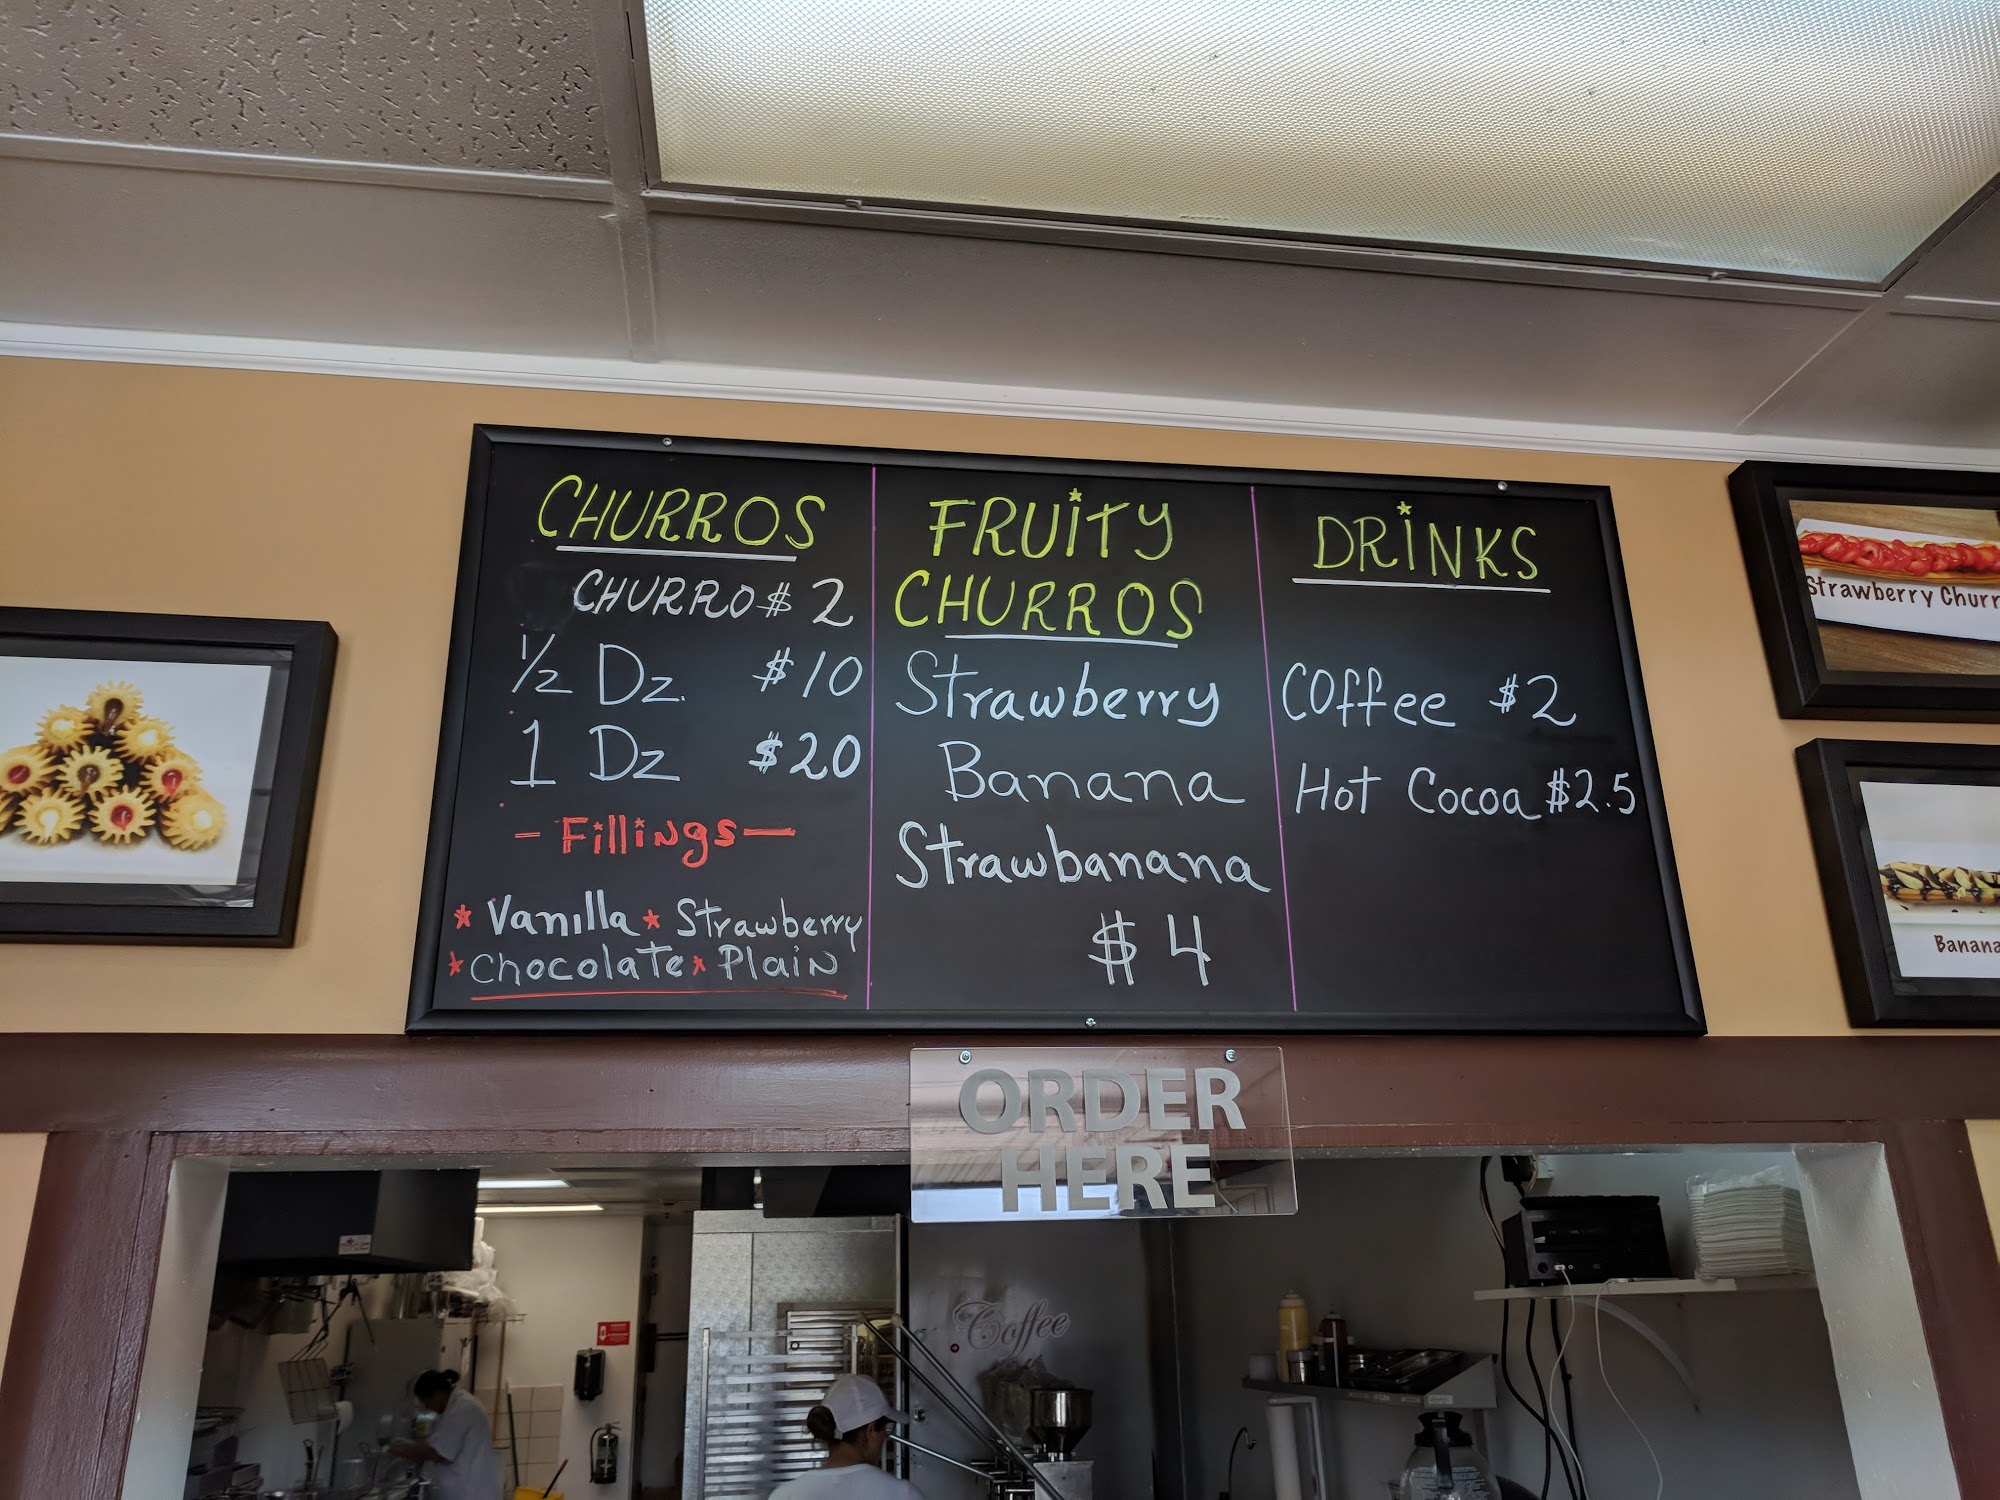 CHURROS
CHURRO $ 2
1/2 Dz. $10
1 Dz $20
- Fillings -
* Vanilla * Strawberry
* Chocolate * Plain
FRUiTY
CHURROS
Strawberry
Banana
Strawbanana
$4
DRiNKS
Coffee $2
Hot Cocoa $2.5
Strawberry Churr
Banana
ORDER
HERE
Coffee